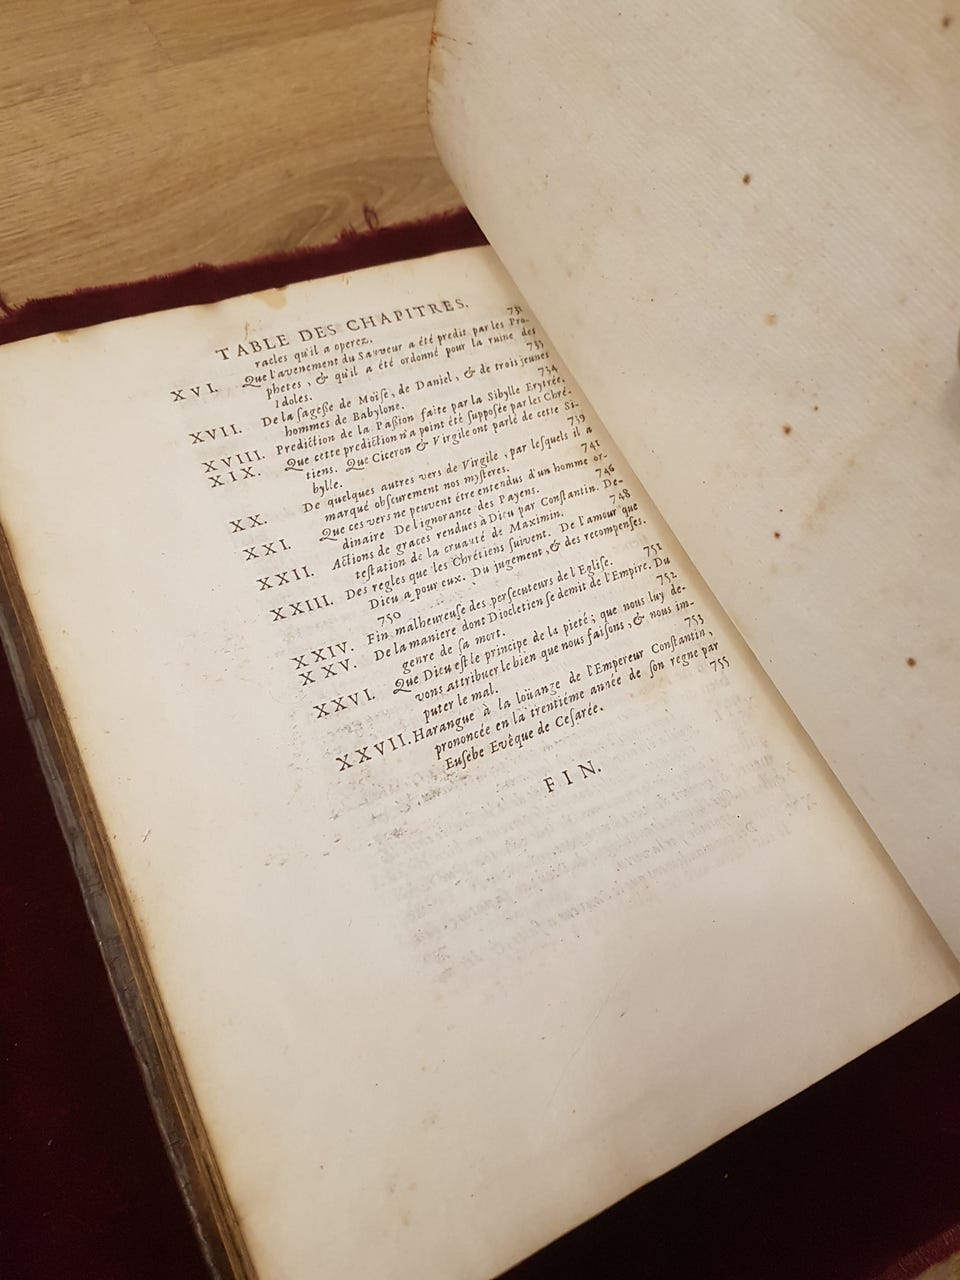 TABLE DES CHAPITRES.
racles qu'il a operez. 731
XVI. Que l'avenement du Sauveur a été predit par les Pro-
phetes, & qu'il a été ordonné pour la ruine des
Idoles. 733
XVII. De la sagesse de Moïse, de Daniel, & de trois jeunes
hommes de Babylone. 734
XVIII. Prediction de la Passion faite par la Sibylle Erytrée.
XIX. Que cette prediction n'a point été supposée par les Chré-
tiens. Que Ciceron & Virgile ont parlé de cette Si-
bylle. 739
XX. De quelques autres vers de Virgile, par lesquels il a
marqué obscurement nos mysteres. 741
XXI. Que ces vers ne peuvent étre entendus d'un homme or-
dinaire De l'ignorance des Payens. 746
XXII. Actions de graces rendues à Dieu par Constantin. De-
testation de la cruauté de Maximin. 748
XXIII. Des regles que les Chrétiens suivent. De l'amour que
Dieu a pour eux. Du jugement, & des recompenses.
750
XXIV. Fin malheureuse des persecuteurs de l'Eglise. 751
XXV. De la maniere dont Diocletien se demit de l'Empire. Du
genre de sa mort. 752
XXVI. Que Dieu est le principe de la pieté; que nous luy de-
vons attribuer le bien que nous faisons, & nous im-
puter le mal. 753
XXVII. Harangue à la loüange de l'Empereur Constantin,
prononcée en la trentiéme année de son regne par
Eusebe Evêque de Cesarée. 755
FIN.